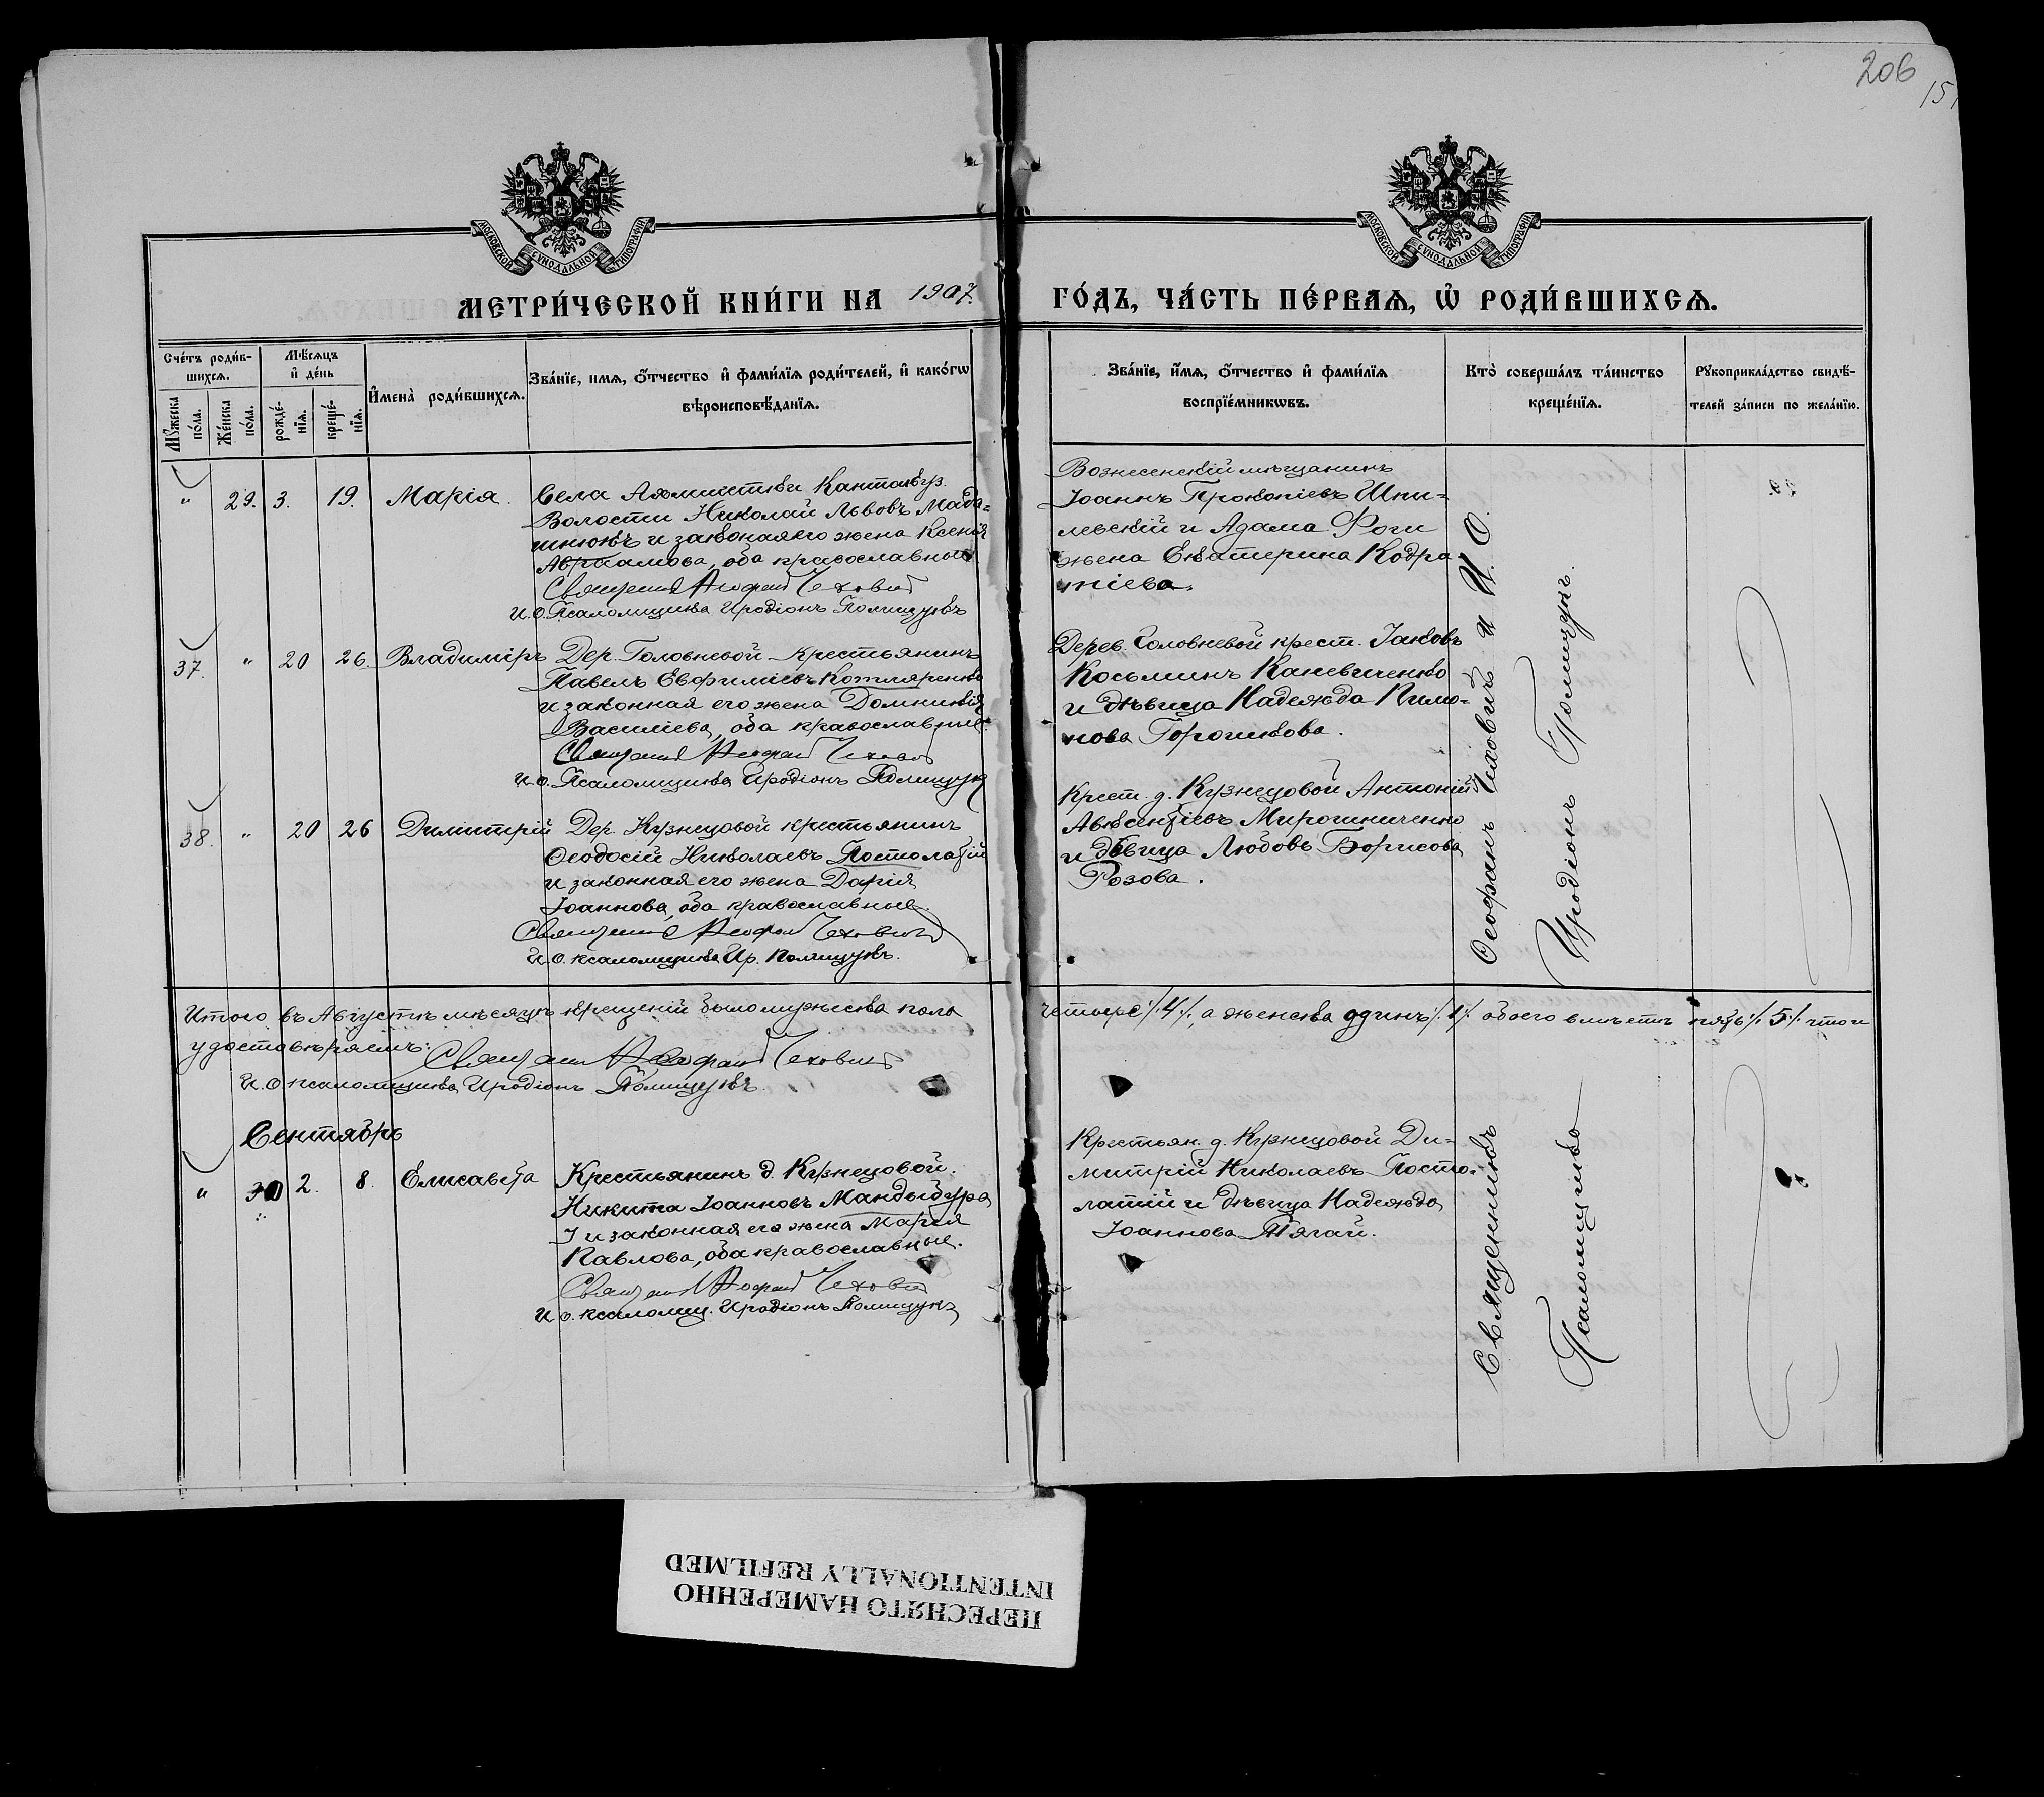 206
151
МОСКОВСКОЙ СУНОДАЛЬНОЙ ТИПОГРАФІИ
МОСКОВСКОЙ СУНОДАЛЬНОЙ ТИПОГРАФІИ
МЕТРИ́ЧЕСКОЙ КНИ́ГИ НА 1907. ГО́ДЪ, ЧА́СТЬ ПЕ́РВАѦ, Ѡ҆ РОДИ́ВШИХСѦ.
Сче́тъ роди́в-
шихсѧ.
Мѣ́сѧцъ
и҆ де́нь
Мꙋ́жеска
по́ла.
Же́нска
по́ла.
рожде́-
нїѧ.
креще́-
нїѧ.
И҆мена̀ роди́вшихсѧ.
Зва́нїе, имѧ, ѻ҆́тчество и҆ фами́лїѧ роди́телей, и҆ како́гѡ
вѣроисповѣ́данїѧ.
Зва́нїе, и҆́мѧ, ѻ҆́тчество и҆ фами́лїѧ
воспрїе́мникѡвъ.
Кто̀ соверша́лъ та́инство
креще́нїѧ.
Рꙋкоприкла́дство свидѣ́-
телей за́писи по жела́нїю.
" 29. 3. 19. Марія.
Села Кантакуз.
Волости Николай Львовъ
и законная его жена Ксенія
Авраамова, оба православные
Священникъ Ѳеофанъ Чеховичъ
И.О. Псаломщика Иродіонъ Полищукъ
Вознесенскій мѣщанинъ
Іоаннъ Прокопіевъ Шпи-
левскій и Адама Фоги
жена Екатерина Кодра
тіева.
37. " 20 26. Владиміръ
Дер. Головневой крестьянинъ
Павелъ Евфиміевъ Котляренко
и законная его жена Домникія
Василіева, оба православные.
Священникъ Ѳеофанъ Чеховичъ
И.О. Псаломщика Иродіонъ Полищукъ
Дерев. Головневой крест. Іаковъ
Косьминъ Каневиченко
и дѣвица Надежда Пимо-
нова Горошкова.
38. " 20 26 Димитрій
Дер. Кузнецовой крестьянинъ
Ѳеодосій Николаевъ Постолатій
и законная его жена Дарія
Іоаннова, оба православные.
Священникъ Ѳеофанъ Чеховичъ
И.О. псаломщика Ир. Полищукъ.
Крест. д. Кузнецовой Антоній
Авксентіевъ Мирошниченко
и дѣвица Любовь Борисова
Розова.
Ѳеофанъ Чеховичъ и И. О.
Иродіонъ Полищукъ.
Итого въ Августѣ мѣсяцѣ крещеній было мужеска пола четыре /.4/., а женска одинъ /.1/. обоего вмѣстѣ пять /.5/. что и
удостовѣряемъ: Священникъ Ѳеофанъ Чеховичъ
И.О. псаломщика Иродіонъ Полищукъ.
Сентябрь
" 30 2. 8. Елисавета
Крестьянинъ д. Кузнецовой
Никита Іоанновъ Мандыбура
и законная его жена Марія
Павлова, оба православные.
Священникъ Ѳеофанъ Чеховичъ
И.О. псаломщ. Иродіонъ Полищукъ
Крестьян. д. Кузнецовой Ди-
митрій Николаевъ Посто-
латій и дѣвица Надежда
Іоаннова Тягай.
Священникъ
Псаломщика
ПЕРЕСНЯТО НАМЕРЕННО
INTENTIONALLY REFILMED